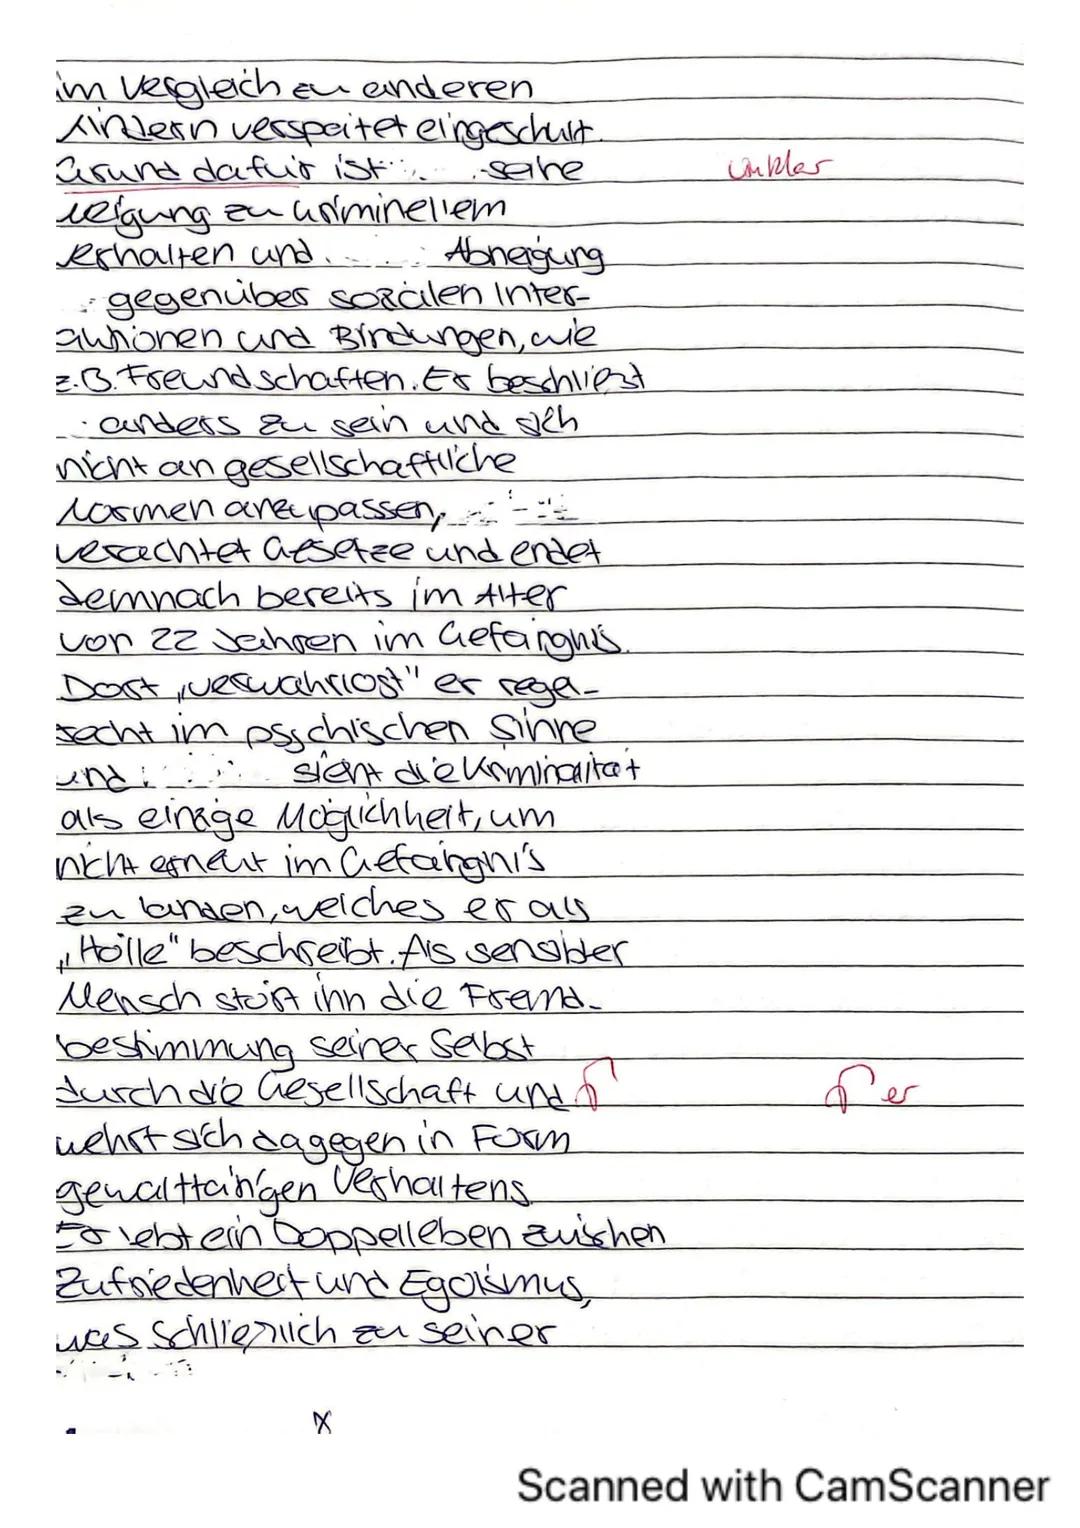 im Vergleich zu anderen
Kindern verspätet eingeschult.
Grund dafür ist seine unklar
Neigung zu kriminellem
Verhalten und Abneigung
gegenüber sozialen Inter-
aktionen und Bindungen, wie
z.B. Freundschaften. Er beschließt
anders zu sein und sich
nicht an gesellschaftliche
Normen anzupassen,
verachtet Gesetze und endet
demnach bereits im Alter
von 22 Jahren im Gefängnis.
Dort „verwahrlost" er rege-
recht im psychischen Sinne
und sieht die Kriminalität
als einzige Möglichkeit, um
nicht erneut im Gefängnis
zu landen, welches er als
„Hölle" beschreibt. Als sensibler
Mensch stört ihn die Fremd-
bestimmung seiner Selbst
durch die Gesellschaft und er
wehrt sich dagegen in Form
gewalttätigen Verhaltens.
Er lebt ein Doppelleben zwischen
Zufriedenheit und Egoismus,
was schließlich zu seiner
Scanned with CamScanner